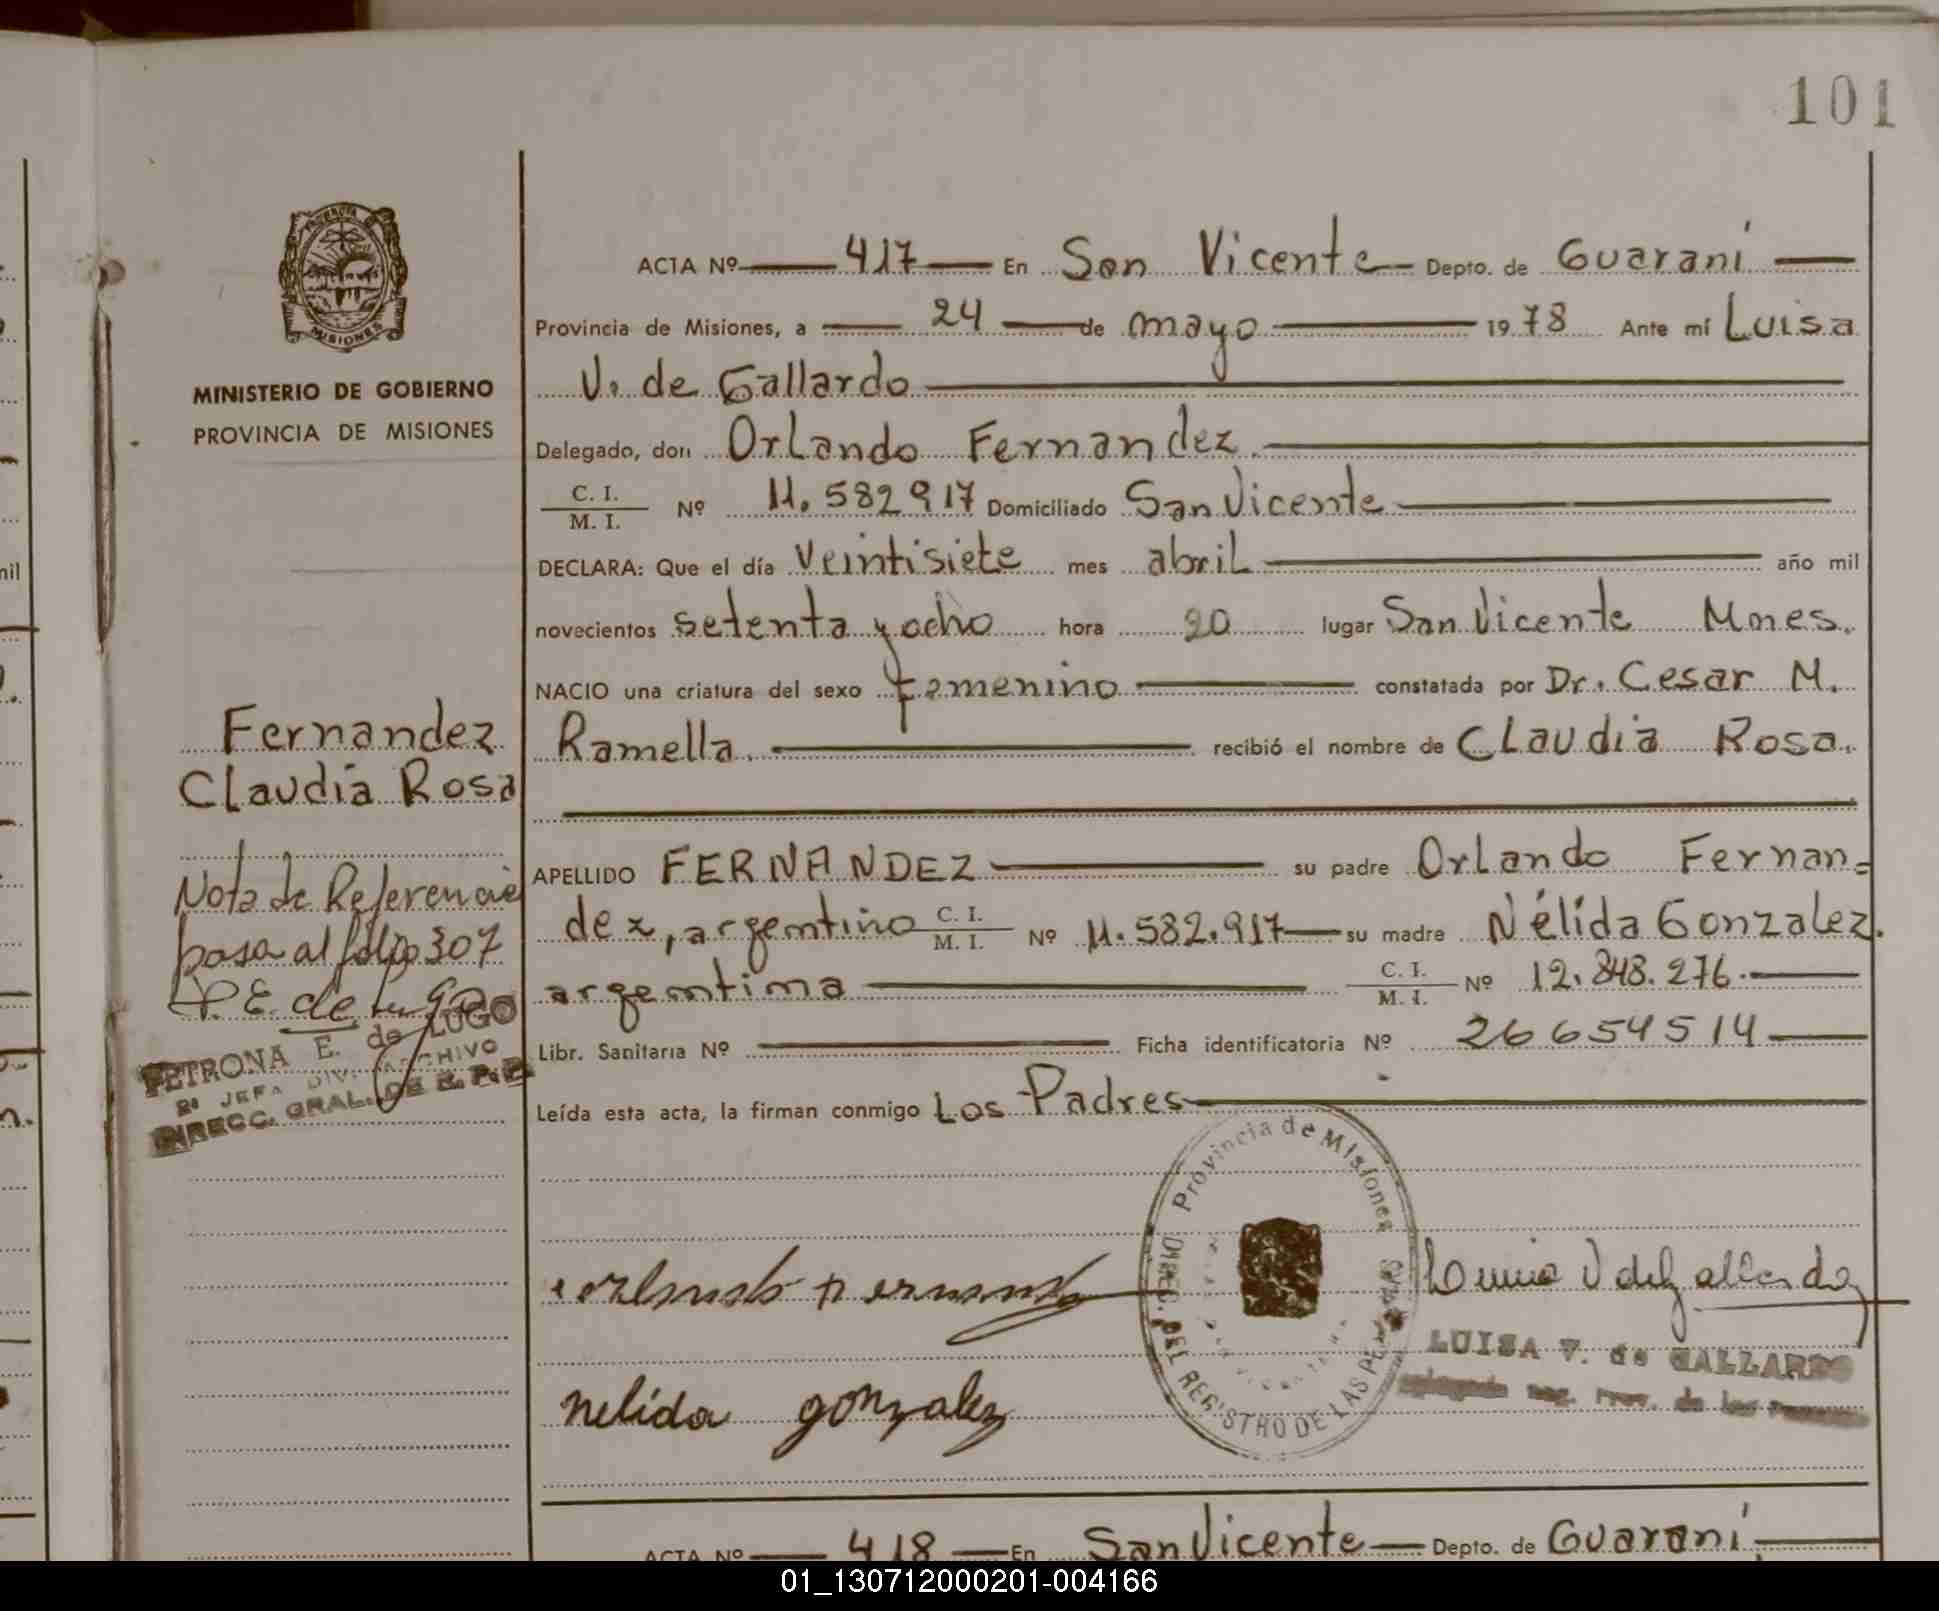 101
PROVINCIA DE
MISIONES
MINISTERIO DE GOBIERNO
PROVINCIA DE MISIONES
ACTA Nº 417 En San Vicente Depto. de Guaraní
Provincia de Misiones, a 24 de mayo 1978 Ante mí Luisa
V. de Gallardo
Delegado, don Orlando Fernandez
C. I.
M. I. Nº 11.582917 Domiciliado San Vicente
DECLARA: Que el día veintisiete mes abril año mil
novecientos setenta y ocho hora 20 lugar San Vicente Mnes.
NACIO una criatura del sexo femenino constatada por Dr. Cesar M.
Ramella. recibió el nombre de Claudia Rosa.
APELLIDO FERNANDEZ su padre Orlando Fernan=
dez, argentino C. I. M. I. Nº 11.582.917 su madre Nélida Gonzalez.
argentina C. I. M. I. Nº 12.848.276.
Libr. Sanitaria Nº Ficha identificatoria Nº 26654514
Leída esta acta, la firman conmigo Los Padres
Fernandez
Claudia Rosa
Nota de Referencia
pasa al folio 307
P. E. de Lugo
PETRONA E. de LUGO
2º JEFA DIV. ARCHIVO
DIRECC. GRAL. DE R. P. P.
Provincia de Misiones
DIREC. DEL REGISTRO DE LAS PE
orlando Fernandez
nelida gonzalez
Luisa V de Gallardo
LUISA V. de GALLARDO
Delegada Reg. Prov. de las Personas
ACTA Nº 418 En San Vicente Depto. de Guaraní
mil
01_130712000201-004166